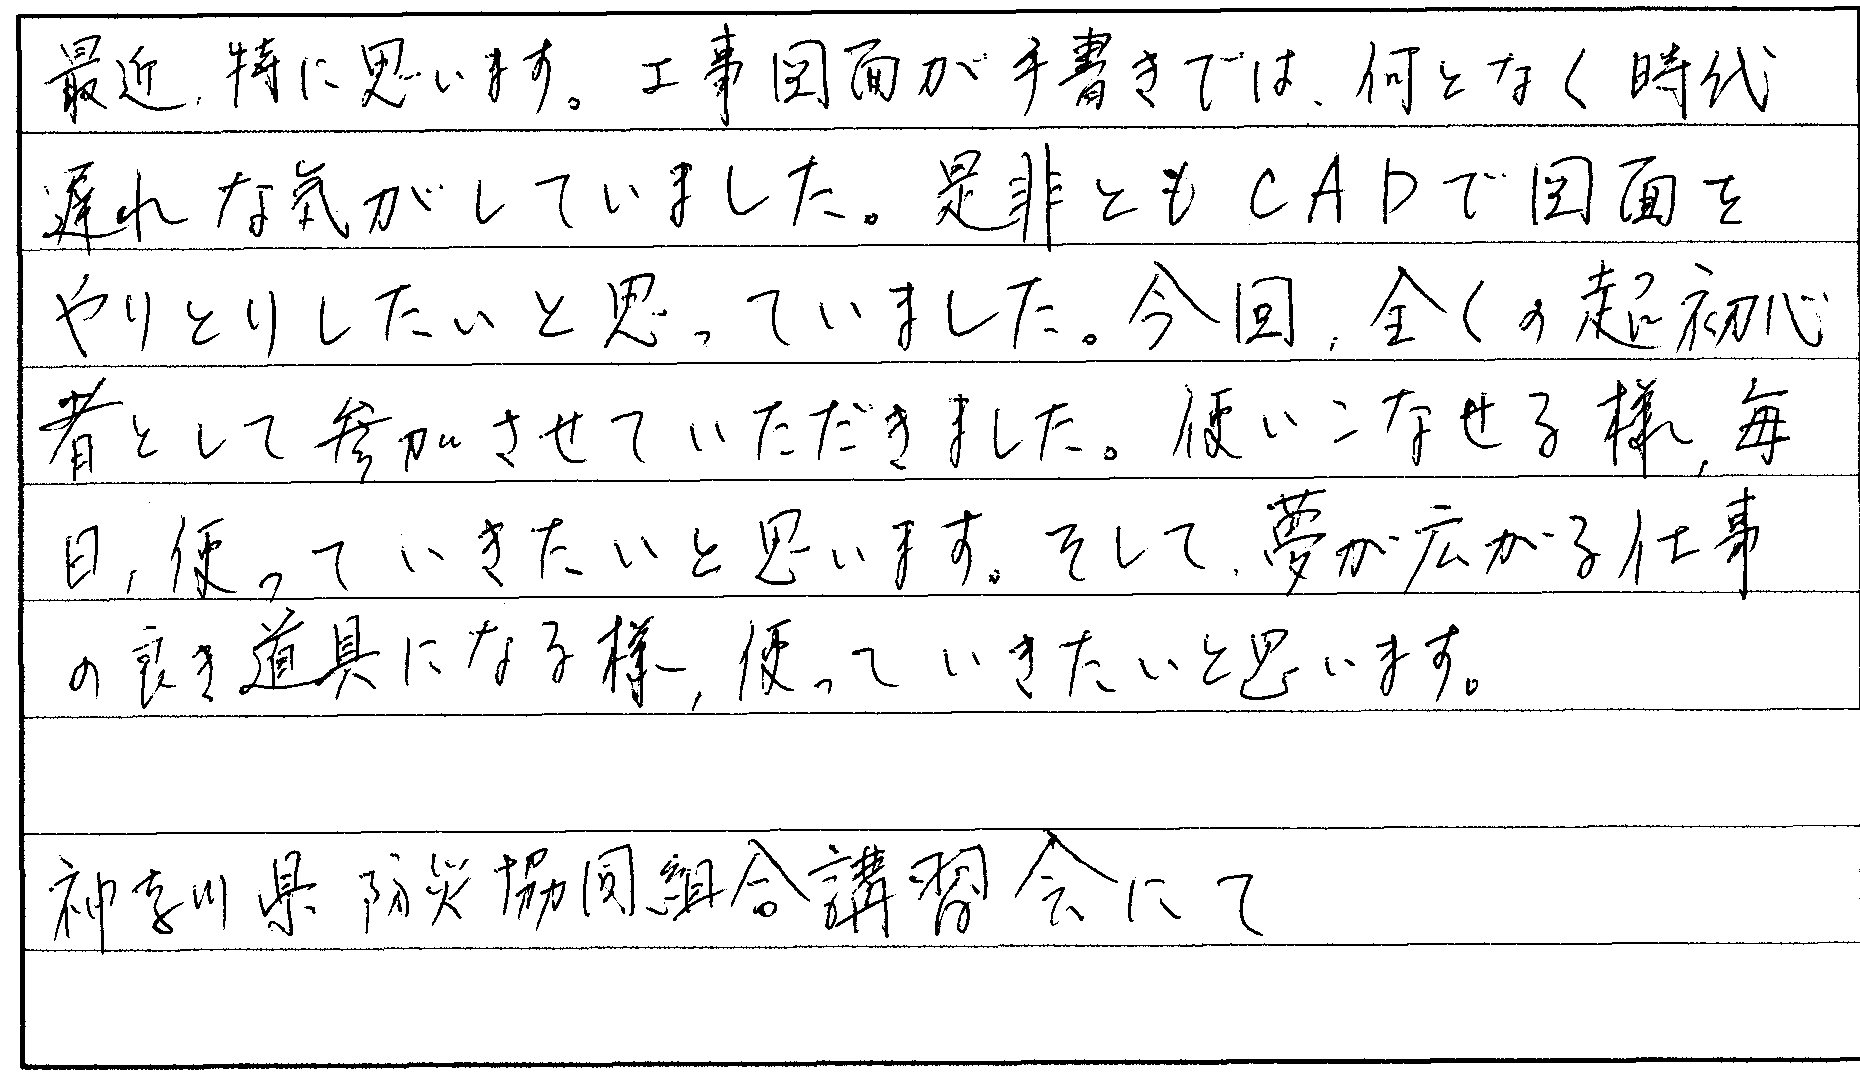 最近、特に思います。工事図面が手書きでは、何となく時代
遅れな気がしていました。是非ともCADで図面を
やりとりしたいと思っていました。今回、全くの超初心
者として参加させていただきました。使いこなせる様、毎
日、使っていきたいと思います。そして、夢が広がる仕事
の良き道具になる様、使っていきたいと思います。
神奈川県防災協同組合講習会にて